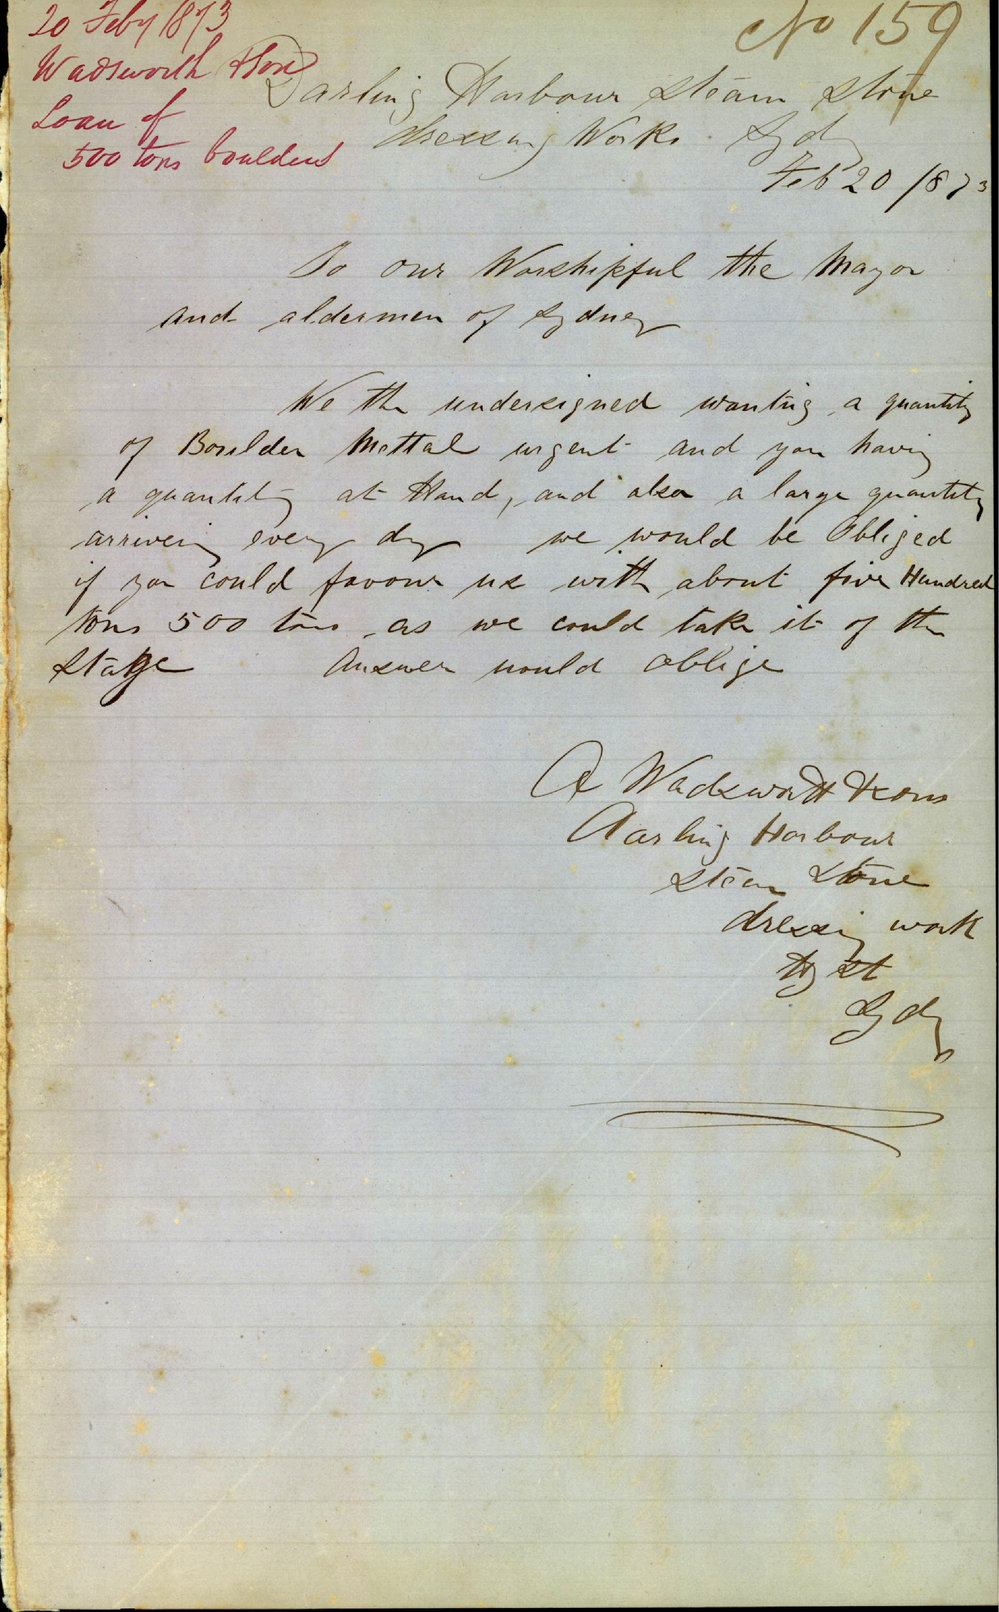 20 Feby 1873
Wadsworth & Son
Loan of
500 tons boulders
No 159
Darling Harbour Steam Stone
dressing Works. Sydy
Feb 20 1873
To our Worshipful the Mayor
and aldermen of Sydney
We the undersigned wanting a quantity
of Boulder Mettal urgent and you having
a quantity at Hand, and also a large quantity
arriveing every day we would be Obliged
if you could favour us with about five Hundred
tons 500 tons as we could take it of the
Stage Answer would oblige
A Wadsworth & sons
Darling Harbour
Steam Stone
dressing work
St
Sydy